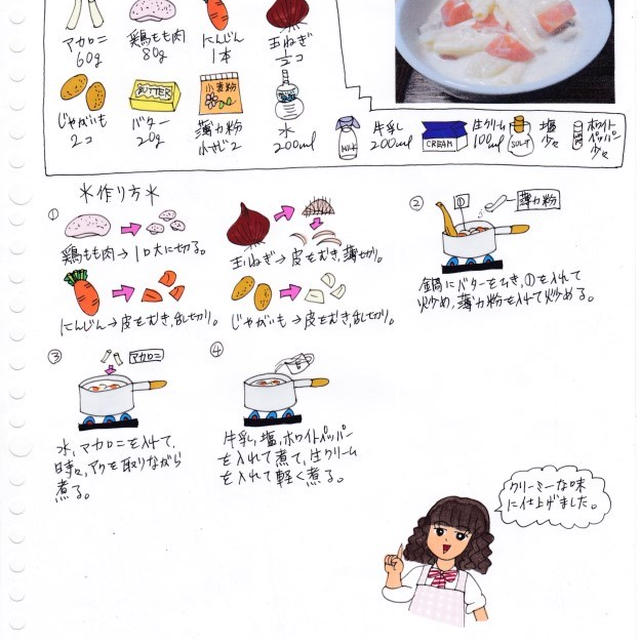 マカロニ
60g
鶏もも肉
80g
にんじん
1本
玉ねぎ
1/2コ
じゃがいも
2コ
BUTTER
バター
20g
小麦粉
薄力粉
小さじ2
水
200ml
MILK
牛乳
200ml
CREAM
生クリーム
100ml
SOLT
塩
少々
ホワイト
ペッパー
少々
*作り方*
①
鶏もも肉→1口大に切る。
玉ねぎ→皮をむき,薄切り。
にんじん→皮をむき,乱切り。
じゃがいも→皮をむき,乱切り。
②
① 薄力粉
鍋にバターをひき,①を入れて
炒め,薄力粉を入れて炒める。
③
マカロニ
水,マカロニを入れて,
時々,アクを取りながら
煮る。
④
牛乳,塩,ホワイトペッパー
を入れて煮て,生クリーム
を入れて軽く煮る。
クリーミーな味
に仕上げました。